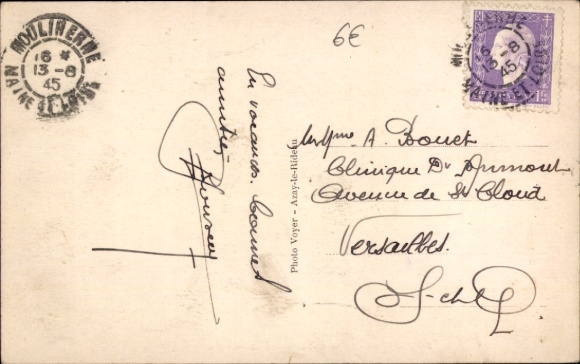 MOULIHERNE
16 *
13-8
45
MAINE ET LOIRE
6€
16
13-8
45
MAINE ET LOIRE
En vacances. Bonnes
amitiés
Photo Voyer - Azay-le-Rideau
A. Bouet
Clinique Dr Aumont
Avenue de St Cloud
Versailles.
S-et-O